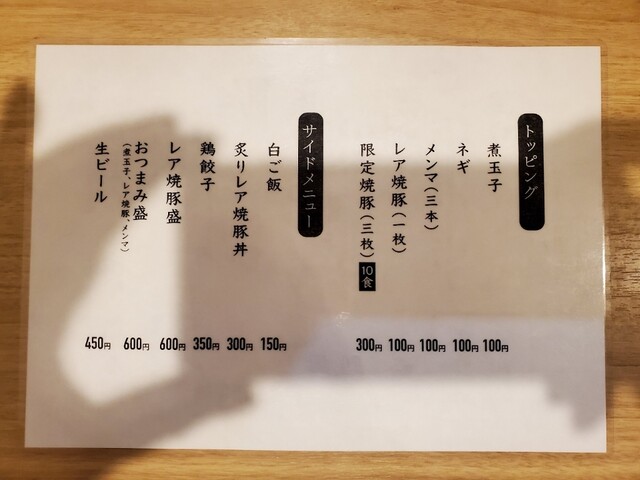 トッピング
煮玉子 100円
ネギ 100円
メンマ(三本) 100円
レア焼豚(一枚) 100円
限定焼豚(三枚) 10食 300円
サイドメニュー
白ご飯 150円
炙りレア焼豚丼 300円
鶏餃子 350円
レア焼豚盛 600円
おつまみ盛 600円
(煮玉子、レア焼豚、メンマ)
生ビール 450円